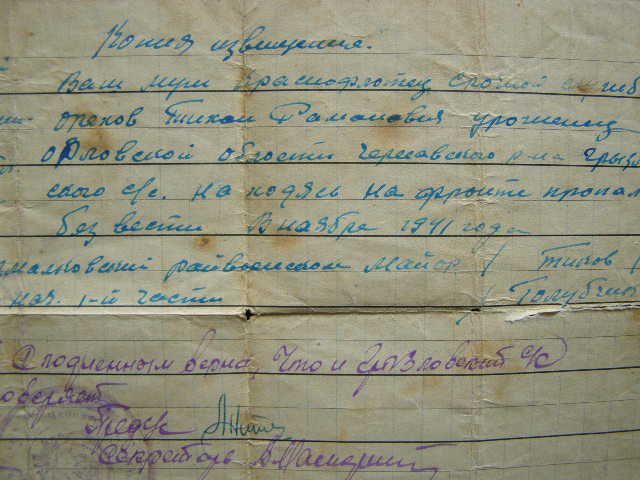 Копия извещения.
Ваш муж краснофлотец срочной служб
орехов Тихон Раманович уроженец
орловской области Чернавского р-на Грызл
ского с/с. находясь на фронте пропал
без вести В наябре 1941 года
змалковский райвоенком майор / Титов /
нач. 1-й части / Голубчик
С подлинным верна, что и Грызловский с/с
Предс
Секретарь